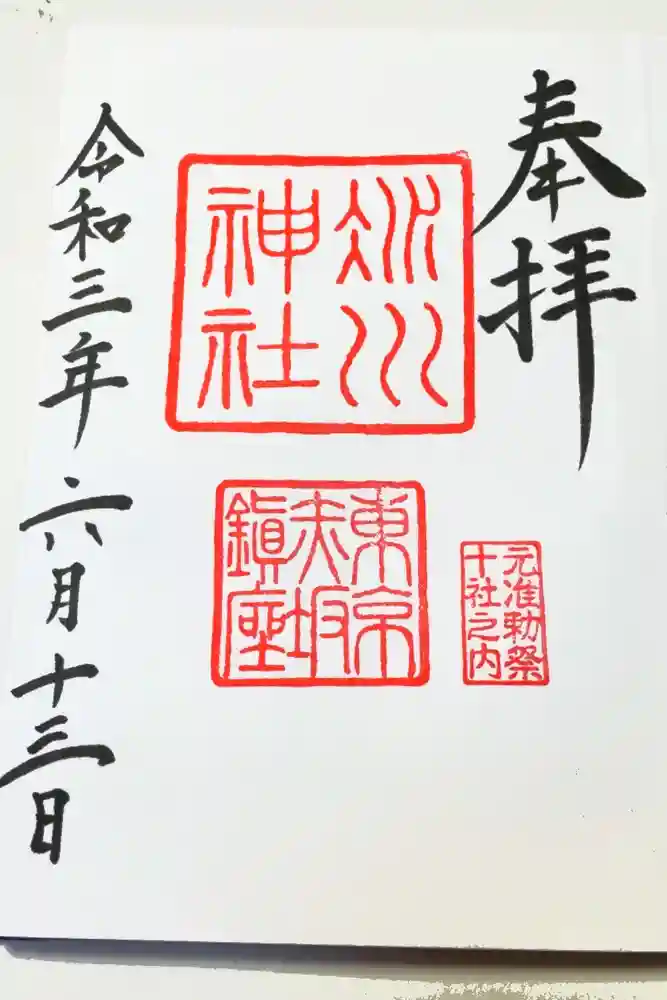 奉拝
氷川
神社
元准勅祭
十社之内
東京
赤坂
鎮座
令和三年 六月十三日